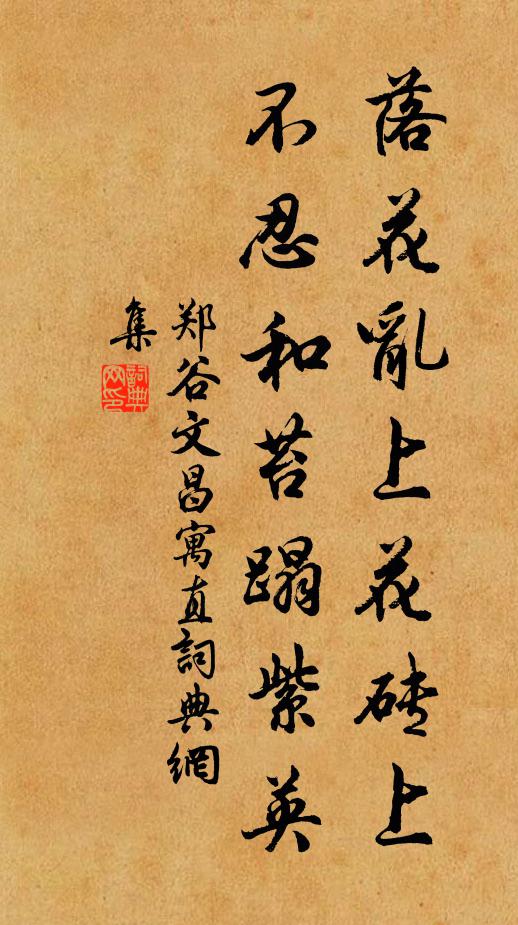 落花亂上花砖上
不忍和苔蹋紫英
郑谷文昌寓直詞典網
集
詞典網印